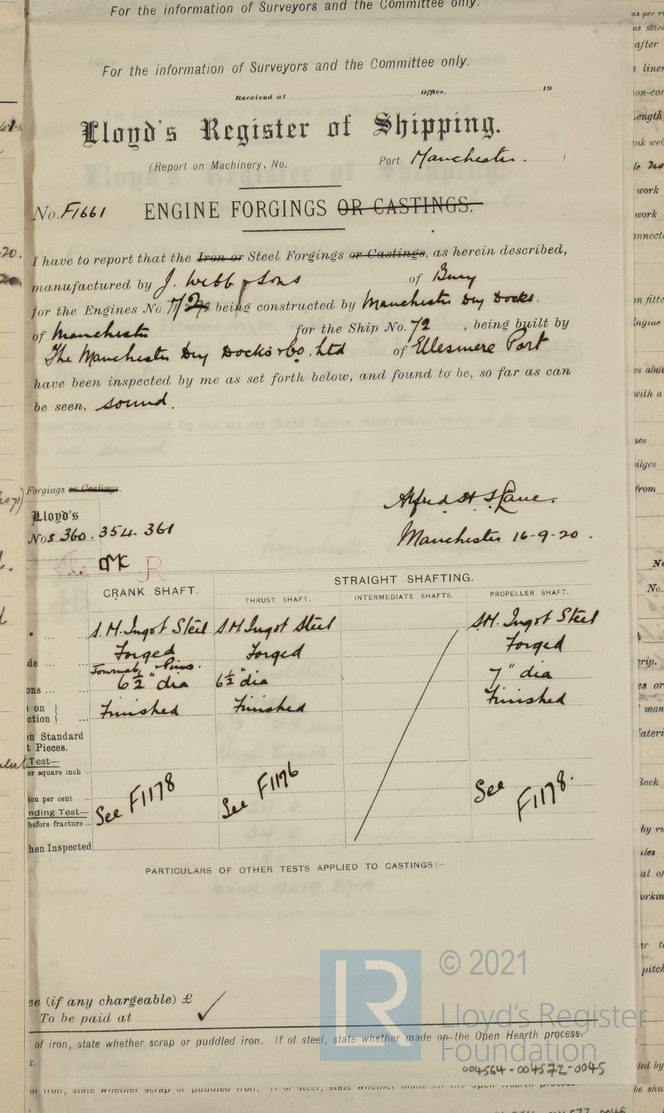 For the information of Surveyors and the Committee only.
For the information of Surveyors and the Committee only.
Received at Office, 19
Lloyd's Register of Shipping.
(Report on Machinery, No. Port Manchester. )
No. F1661 ENGINE FORGINGS OR CASTINGS.
I have to report that the Iron or Steel Forgings or Castings, as herein described,
manufactured by J. Webb & Sons of Bury
for the Engines No. 72 being constructed by Manchester Dry Docks.
of Manchester for the Ship No. 72, being built by
The Manchester Dry Docks & Co. Ltd of Ellesmere Port
have been inspected by me as set forth below, and found to be, so far as can
be seen, sound.
Forgings or Castings.
Lloyd's
Nos 360. 354. 361
Manchester 16-9-20.
R
STRAIGHT SHAFTING.
CRANK SHAFT. THRUST SHAFT. INTERMEDIATE SHAFTS. PROPELLER SHAFT.
S.M. Ingot Steel S.M Ingot Steel S.M. Ingot Steel
Forged Forged Forged
Journals, Pins.
6½" dia 6½" dia 7" dia
Finished Finished Finished
on
ction
n Standard
t Pieces.
Test—
er square inch
ion per cent
See F1178 See F1176 See F1178.
nding Test—
before fracture
hen Inspected
PARTICULARS OF OTHER TESTS APPLIED TO CASTINGS:—
ee (if any chargeable) £
To be paid at
of iron, state whether scrap or puddled iron. If of steel, state whether made on the Open Hearth process.
LR © 2021
Lloyd's Register
Foundation
004564-004572-0045